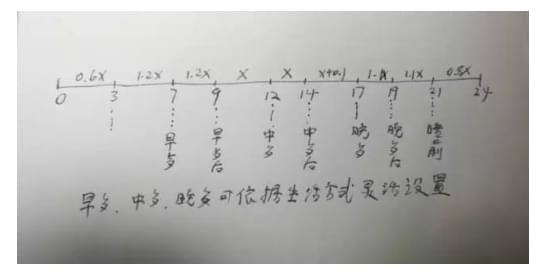 0.6X 1.2X 1.2X X X X+0.1 1.1X 1.1X 0.8X
0 3 7 9 12 14 17 19 21 24
早歺
早歺后
中歺
中歺后
晚歺
晚歺后
睡前
早歺、中歺、晚歺可依据生活方式灵活设置